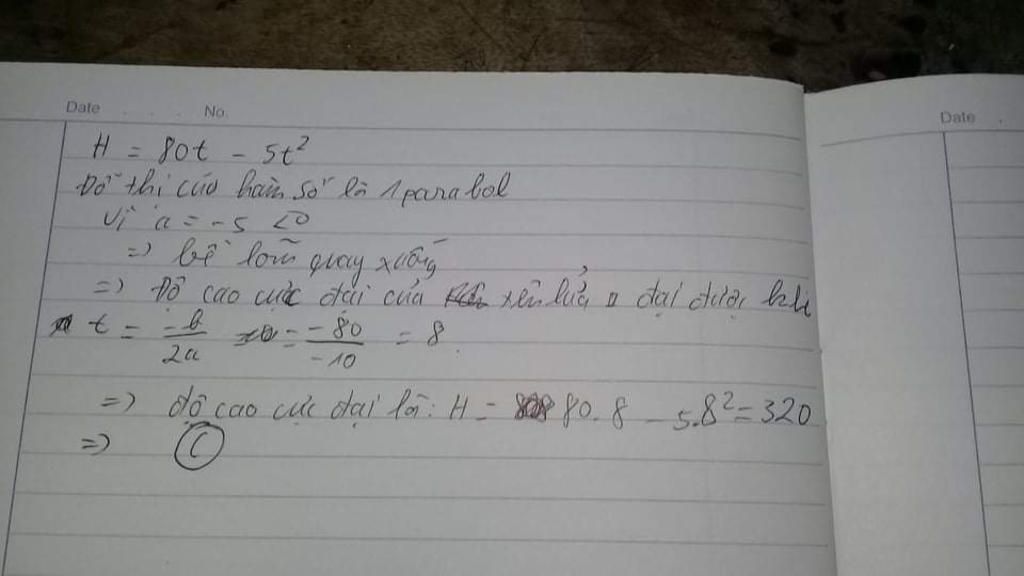 Date No. Date
H = 80t - 5t²
Đồ thị của hàm số là 1 parabol
Vì a = -5 < 0
=> bề lõm quay xuống
=> Độ cao cực đại của tên lửa đạt được khi
t = -b/2a = -80/-10 = 8
=> độ cao cực đại là: H = 80.8 - 5.8² = 320
=> C